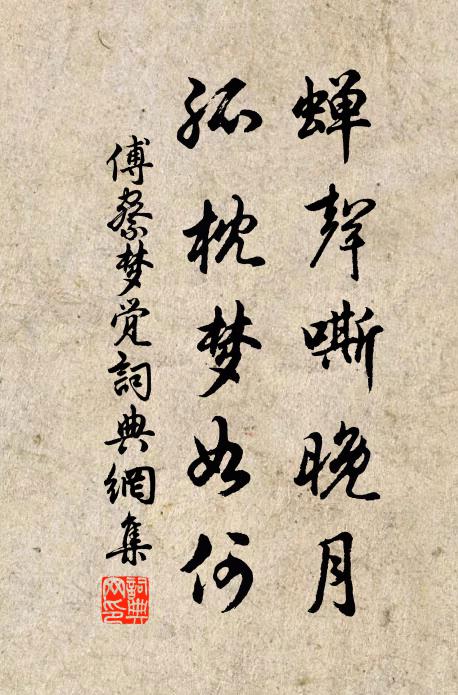 蝉聲嘶晚月
孤枕梦如何
傅察梦觉詞典網集
詞典网印